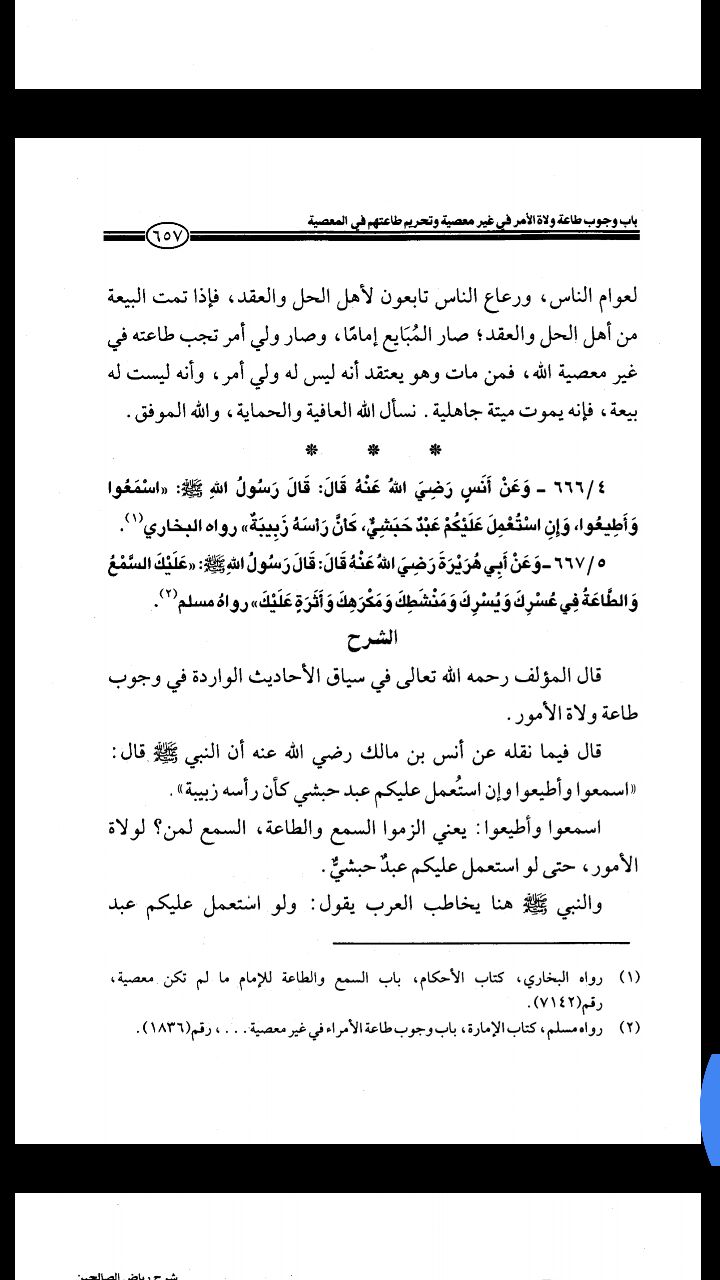 باب وجوب طاعة ولاة الأمر في غير معصية وتحريم طاعتهم في المعصية
٦٥٧
لعوام الناس، ورعاع الناس تابعون لأهل الحل والعقد، فإذا تمت البيعة
من أهل الحل والعقد؛ صار المُبَايع إمامًا، وصار ولي أمر تجب طاعته في
غير معصية الله، فمن مات وهو يعتقد أنه ليس له ولي أمر، وأنه ليست له
بيعة، فإنه يموت ميتة جاهلية. نسأل الله العافية والحماية، والله الموفق.
* * *
٦٦٦/٤ ـ وَعَنْ أَنَسٍ رَضِيَ اللهُ عَنْهُ قَالَ: قَالَ رَسُولُ اللهِ ﷺ: «اسْمَعُوا
وَأَطِيعُوا، وَإِنِ اسْتُعْمِلَ عَلَيْكُمْ عَبْدٌ حَبَشِيٌّ، كَأَنَّ رَأْسَهُ زَبِيبَةٌ» رواه البخاري(١).
٦٦٧/٥ ـ وَعَنْ أَبِي هُرَيْرَةَ رَضِيَ اللهُ عَنْهُ قَالَ: قَالَ رَسُولُ اللهِ ﷺ: «عَلَيْكَ السَّمْعُ
وَالطَّاعَةُ فِي عُسْرِكَ وَيُسْرِكَ وَمَنْشَطِكَ وَمَكْرَهِكَ وَأَثَرَةٍ عَلَيْكَ» رواهُ مسلم(٢).
الشرح
قال المؤلف رحمه الله تعالى في سياق الأحاديث الواردة في وجوب
طاعة ولاة الأمور.
قال فيما نقله عن أنس بن مالك رضي الله عنه أن النبي ﷺ قال:
«اسمعوا وأطيعوا وإن استُعمل عليكم عبد حبشي كأن رأسه زبيبة».
اسمعوا وأطيعوا: يعني الزموا السمع والطاعة، السمع لمن؟ لولاة
الأمور، حتى لو استعمل عليكم عبدٌ حبشيٌّ.
والنبي ﷺ هنا يخاطب العرب يقول: ولو استعمل عليكم عبد
(١) رواه البخاري، كتاب الأحكام، باب السمع والطاعة للإمام ما لم تكن معصية،
رقم(٧١٤٢).
(٢) رواه مسلم، كتاب الإمارة، باب وجوب طاعة الأمراء في غير معصية . . . ، رقم(١٨٣٦).
شرح رياض الصالحين